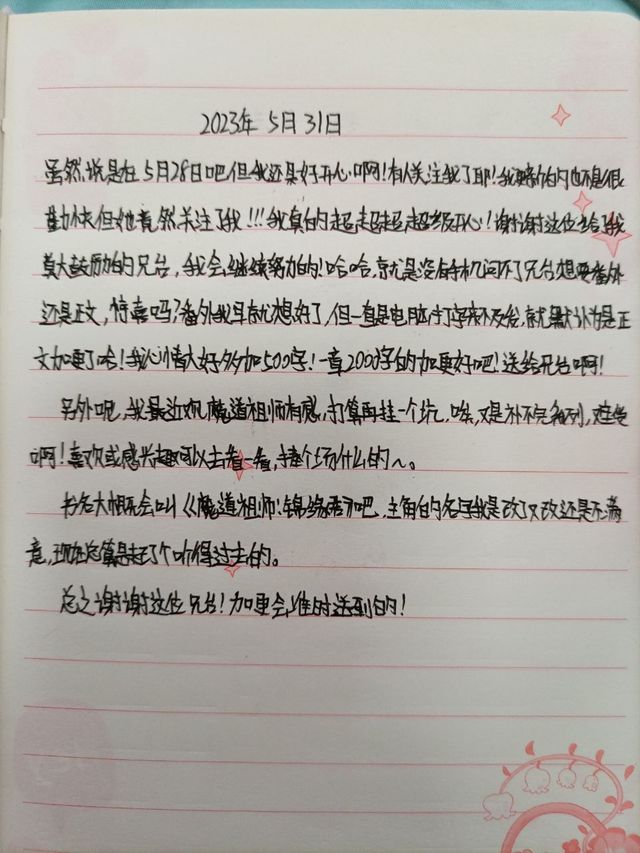 2023年 5月 31日
虽然说是在5月28日吧,但我还是好开心啊!有人关注我了耶!我更新的也不是很
勤快但她竟然关注了我!!!我真的超超超超级开心!谢谢这位给了我
莫大鼓励的兄台,我会继续努力的!哈哈,就是没有手机问不了兄台想要番外
还是正文,惊喜吗?番外我早就想好了,但一直是电脑打字来不及发,就默认为是正
文加更了哈!我心情大好多加500字!一章2000字的加更好吧!送给兄台啊!
另外呢,我最近对《魔道祖师》有感,打算再挂一个坑,唉,又是补不完系列,难受
啊!喜欢或感兴趣可以去看一看,捧个场什么的~。
书名大概会叫《魔道祖师:锦缘 吧,主角的名字我是改了又改还是不满
意,现在总算是起了个听得过去的。
总之谢谢这位兄台!加更会准时送到的!